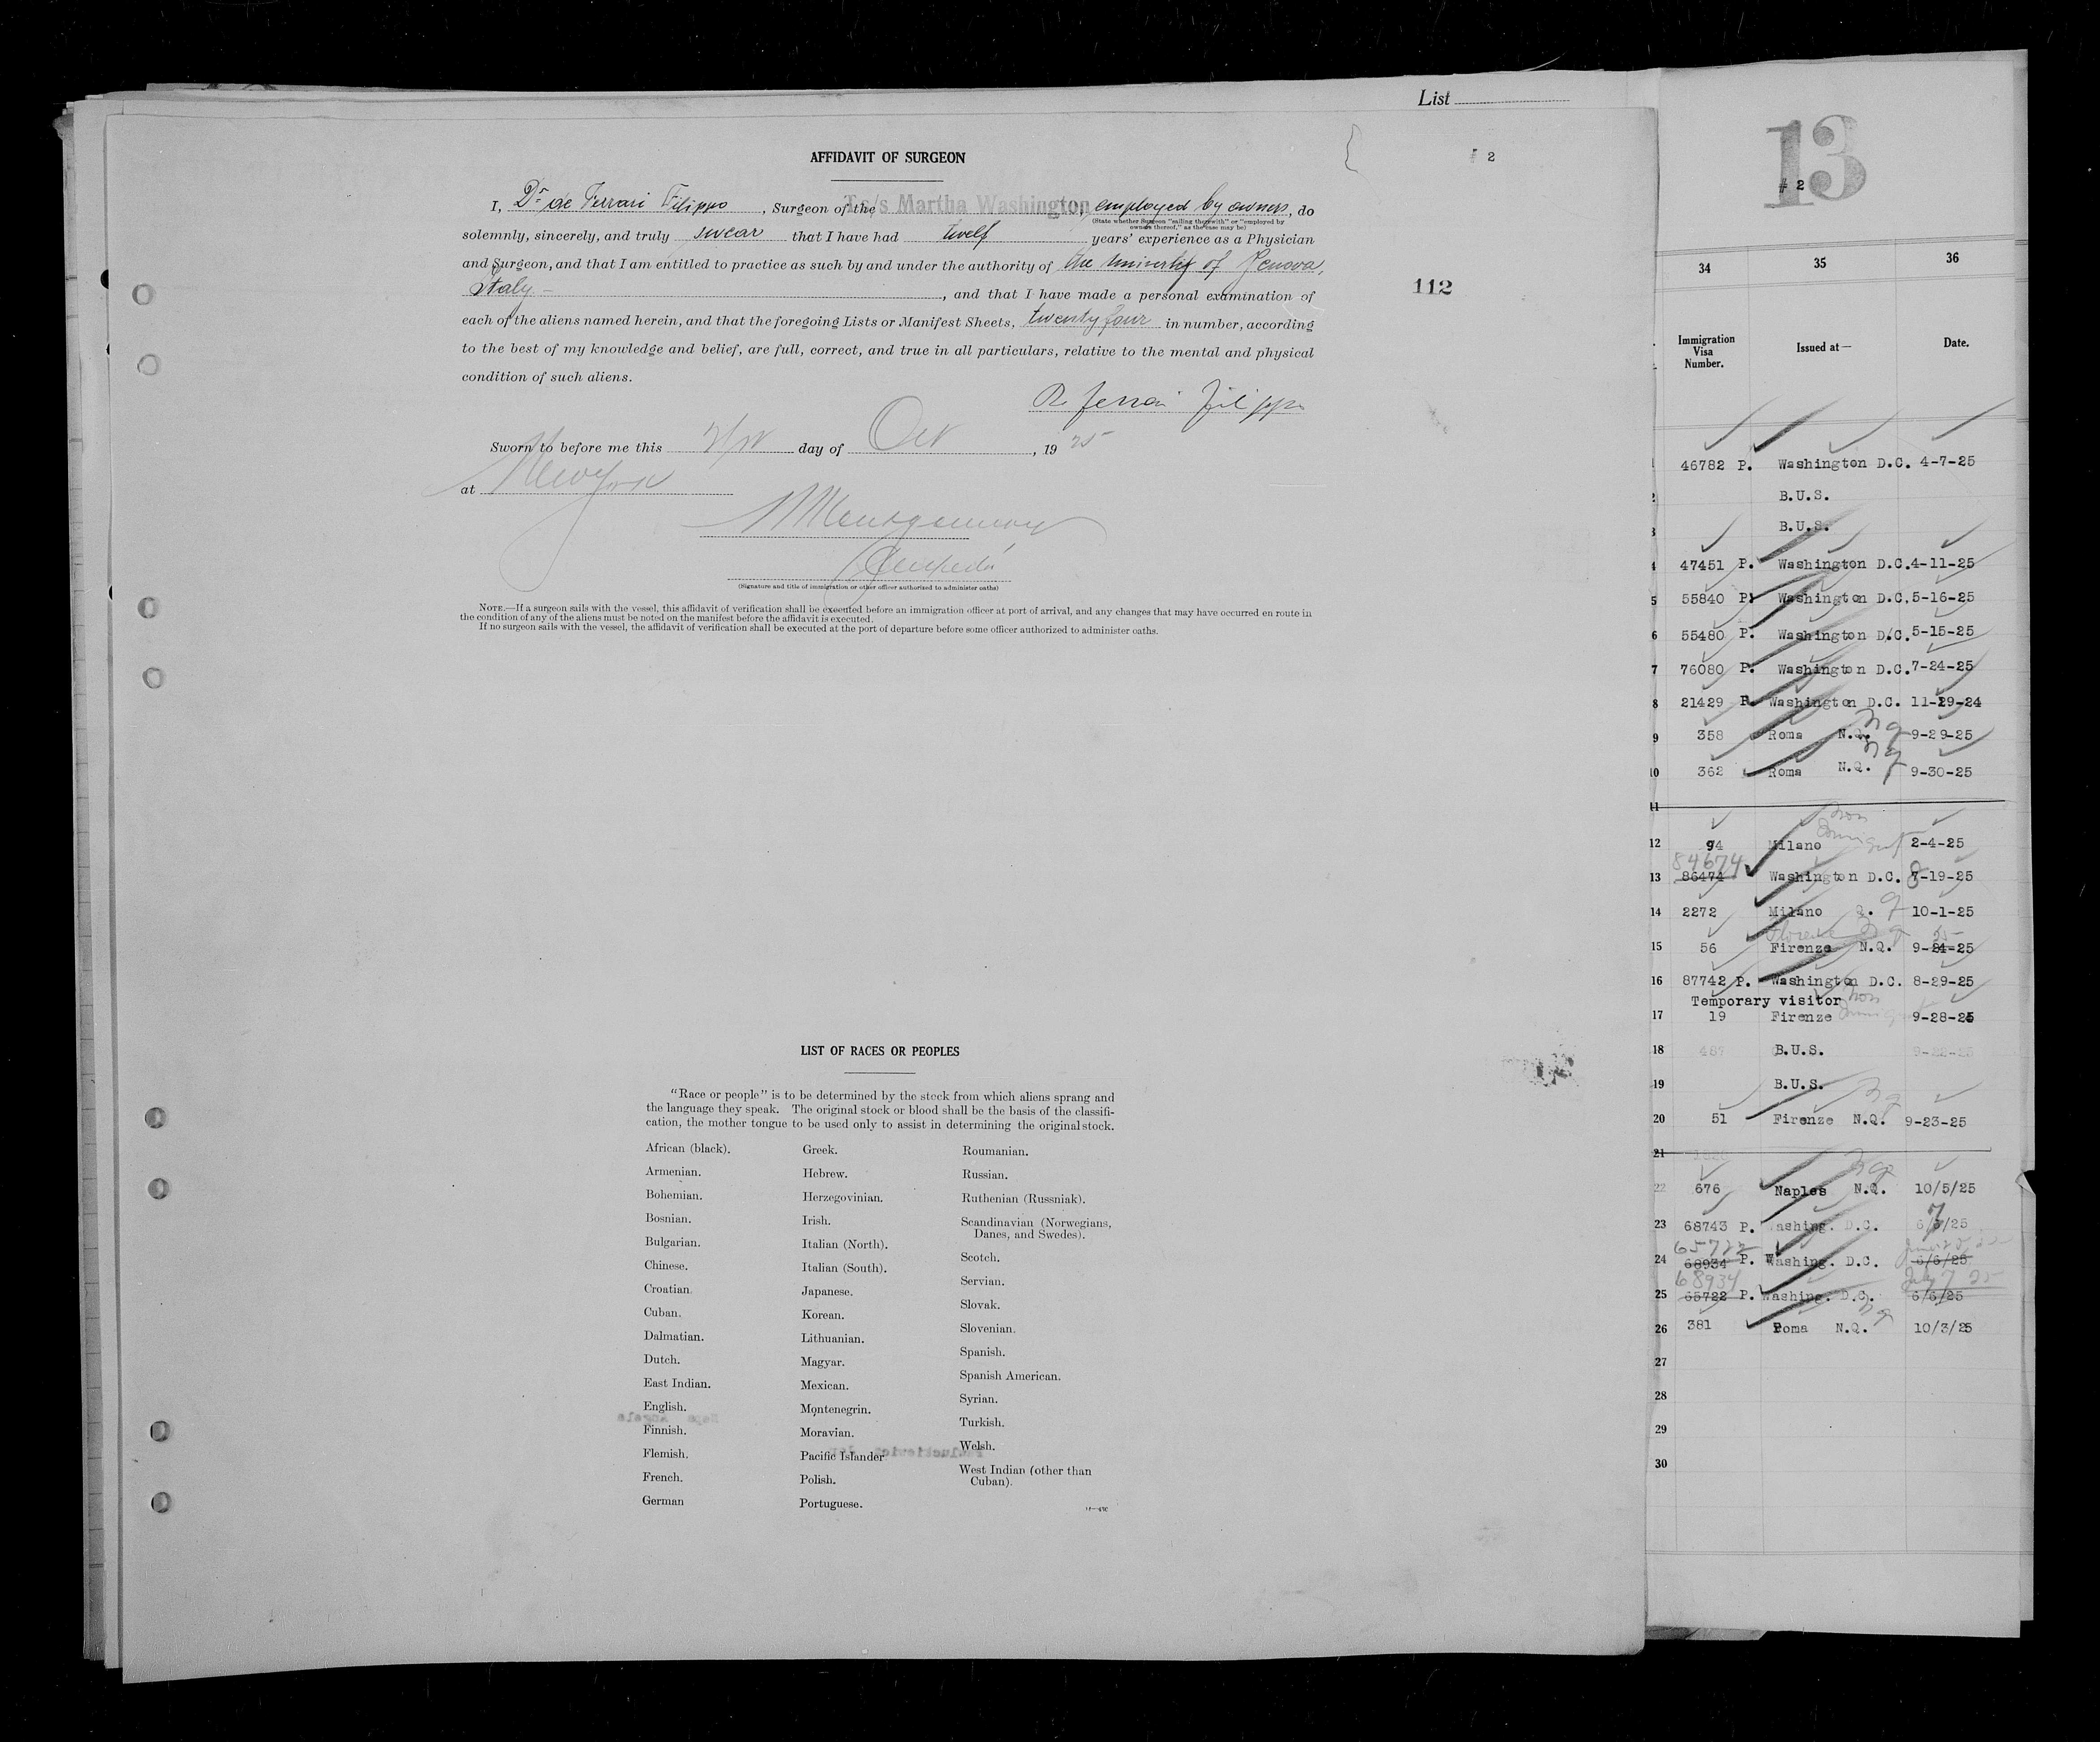 List
AFFIDAVIT OF SURGEON
# 2
I, Dr de Ferrari Filippo, Surgeon of the T.s/s Martha Washington, employed by owners, do
(State whether Surgeon "sailing therewith" or "employed by
owners thereof," as the case may be)
solemnly, sincerely, and truly swear that I have had twelf years' experience as a Physician
and Surgeon, and that I am entitled to practice as such by and under the authority of the University of Genova,
Italy - , and that I have made a personal examination of
112
each of the aliens named herein, and that the foregoing Lists or Manifest Sheets, twenty four in number, according
to the best of my knowledge and belief, are full, correct, and true in all particulars, relative to the mental and physical
condition of such aliens.
Ferrari Filippo
Sworn to before me this 21st day of Oct, 1925
at New York
Montgomery
(Signature and title of immigration or other officer authorized to administer oaths)
NOTE.—If a surgeon sails with the vessel, this affidavit of verification shall be executed before an immigration officer at port of arrival, and any changes that may have occurred en route in
the condition of any of the aliens must be noted on the manifest before the affidavit is executed.
If no surgeon sails with the vessel, the affidavit of verification shall be executed at the port of departure before some officer authorized to administer oaths.
LIST OF RACES OR PEOPLES
"Race or people" is to be determined by the stock from which aliens sprang and
the language they speak. The original stock or blood shall be the basis of the classifi-
cation, the mother tongue to be used only to assist in determining the original stock.
African (black).
Armenian.
Bohemian.
Bosnian.
Bulgarian.
Chinese.
Croatian.
Cuban.
Dalmatian.
Dutch.
East Indian.
English.
Finnish.
Flemish.
French.
German
Greek.
Hebrew.
Herzegovinian.
Irish.
Italian (North).
Italian (South).
Japanese.
Korean.
Lithuanian.
Magyar.
Mexican.
Montenegrin.
Moravian.
Pacific Islander
Polish.
Portuguese.
Roumanian.
Russian.
Ruthenian (Russniak).
Scandinavian (Norwegians,
Danes, and Swedes).
Scotch.
Servian.
Slovak.
Slovenian.
Spanish.
Spanish American.
Syrian.
Turkish.
Welsh.
West Indian (other than
Cuban).
13
# 2
34 35 36
Immigration
Visa
Number.
Issued at—
Date.
46782 P. Washington D.C. 4-7-25
2 B.U.S.
3 B.U.S.
4 47451 P. Washington D.C. 4-11-25
5 55840 P. Washington D.C. 5-16-25
6 55480 P. Washington D.C. 5-15-25
7 76080 P. Washington D.C. 7-24-25
8 21429 P. Washington D.C. 11-29-24
9 358 Roma N.Q. nq 9-29-25
10 362 Roma N.Q. nq 9-30-25
11
12 94 Milano non Immigrant 2-4-25
84674
13 86474 Washington D.C. 8 7-19-25
14 2272 Milano Q. q 10-1-25
Florence nq 25
15 56 Firenze N.Q. 9-24-25
16 87742 P. Washington D.C. 8-29-25
Temporary visitor non
17 19 Firenze 9-28-25
18 B.U.S.
19 B.U.S.
20 51 Firenze N.Q. nq 9-23-25
21
22 676 Naples N.Q. nq 10/5/25
23 68743 P. Washing. D.C. 7 6/3/25
65722 June 25, 25
24 68934 P. Washing. D.C. 6/6/25
68934 July 7 25
25 65722 P. Washing. D.C. 6/6/25
26 381 Roma N.Q. nq 10/3/25
27
28
29
30